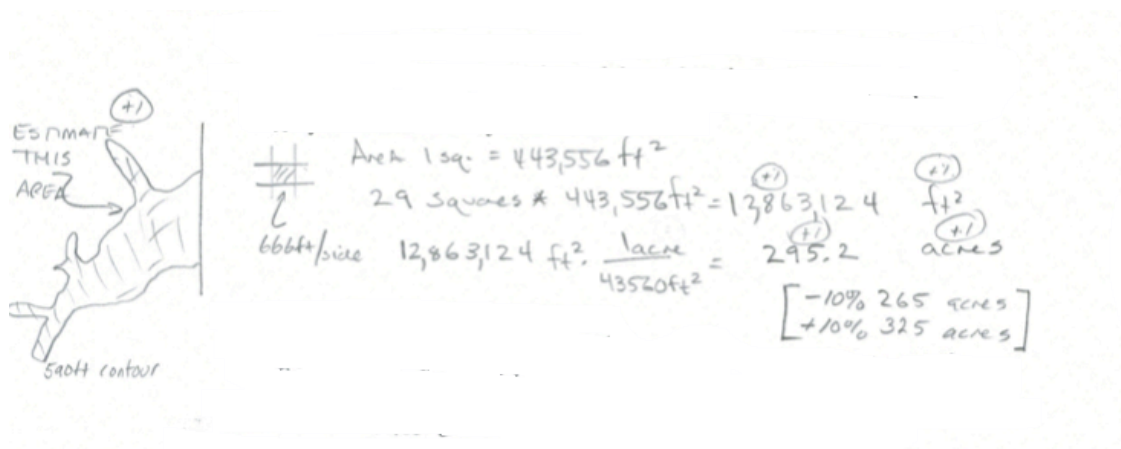 +1
ESTIMATE
THIS
AREA
590ft contour
666ft/side
Area 1 sq. = 443,556 ft²
29 squares * 443,556 ft² = 12,863,124 ft²
+1 +1
12,863,124 ft². 1 acre / 43560ft² = 295.2 acres
+1 +1
[-10% 265 acres
+10% 325 acres]